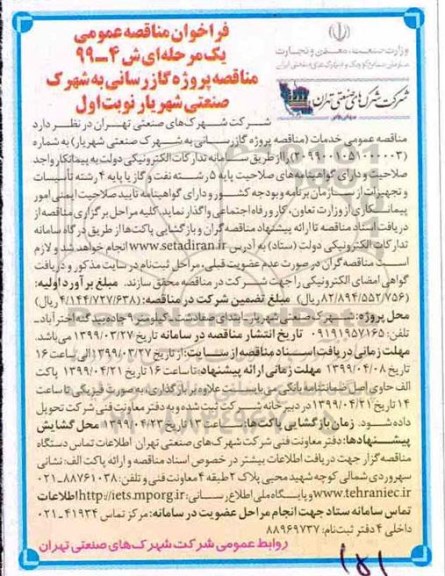 فراخوان مناقصه عمومی
یک مرحله‌ای ش ۴-۹۹
مناقصه پروژه گازرسانی به شهرک
صنعتی شهریار نوبت اول
وزارت صنعت، معدن و تجارت
سازمان صنایع کوچک و شهرکهای صنعتی ایران
شرکت شهرک‌های صنعتی تهران
شرکت شهرک‌های صنعتی تهران در نظر دارد
مناقصه عمومی خدمات (مناقصه پروژه گازرسانی به شهرک صنعتی شهریار) به شماره
(۲۰۹۹۰۰۱۰۵۱۰۰۰۰۰۳) را از طریق سامانه تدارکات الکترونیکی دولت به پیمانکار واجد
صلاحیت و دارای گواهینامه‌های صلاحیت پایه ۵ رشته نفت و گاز یا پایه ۴ رشته تأسیسات
و تجهیزات از سازمان برنامه و بودجه کشور و دارای گواهینامه تأیید صلاحیت ایمنی امور
پیمانکاری از وزارت تعاون، کار و رفاه اجتماعی واگذار نماید. کلیه مراحل برگزاری مناقصه از
دریافت اسناد مناقصه تا ارائه پیشنهاد مناقصه گران و بازگشایی پاکت‌ها از طریق درگاه سامانه
تدارکات الکترونیکی دولت (ستاد) به آدرس www.setadiran.ir انجام خواهد شد و لازم
است مناقصه گران در صورت عدم عضویت قبلی، مراحل ثبت‌نام در سایت مذکور و دریافت
گواهی امضای الکترونیکی را جهت شرکت در مناقصه محقق سازند. مبلغ برآورد اولیه:
(۸۲/۸۹۴/۵۵۲/۷۵۶ ریال) مبلغ تضمین شرکت در مناقصه: (۴/۱۴۴/۷۲۷/۶۳۸ ریال)
محل پروژه: شهرک صنعتی شهریار، ابتدای صفادشت، کیلومتر ۹ جاده بیدگنه اخترآباد-
تلفن: ۰۹۱۹۱۹۵۷۱۶۵ تاریخ انتشار مناقصه در سامانه تاریخ ۱۳۹۹/۰۳/۲۷ می‌باشد.
مهلت زمانی دریافت اسناد مناقصه از سایت: از تاریخ ۱۳۹۹/۰۳/۲۷ الی ساعت ۱۶
تاریخ ۱۳۹۹/۰۴/۰۸ مهلت زمانی ارائه پیشنهاد: تا ساعت ۱۶ تاریخ ۱۳۹۹/۰۴/۲۱ پاکت
الف حاوی اصل ضمانتنامه بانکی می‌بایست علاوه بر بارگذاری، به صورت فیزیکی تا ساعت
۱۴ تاریخ ۱۳۹۹/۰۴/۲۱ در دبیرخانه شرکت ثبت شده و به دفتر معاونت فنی شرکت تحویل
داده شود. زمان بازگشایی پاکت‌ها: ساعت تاریخ ۱۳۹۹/۰۴/۲۳ محل گشایش
پیشنهادها: دفتر معاونت فنی شرکت شهرک‌های صنعتی تهران اطلاعات تماس دستگاه
مناقصه گزار جهت دریافت اطلاعات بیشتر در خصوص اسناد مناقصه و ارائه پاکت الف: نشانی
سهروردی شمالی کوچه شهید محبی پلاک ۲ طبقه ۴ معاونت فنی و تلفن: ۸۸۷۶۱۰۳۸-۰۲۱
www.tehraniec.ir و پایگاه ملی اطلاع رسانی: http://iets.mporg.ir اطلاعات
تماس سامانه ستاد جهت انجام مراحل عضویت در سامانه: مرکز تماس ۴۱۹۳۴-۰۲۱
داخلی ۴ دفتر ثبت‌نام: ۸۸۹۶۹۷۳۷
روابط عمومی شرکت شهرک‌های صنعتی تهران